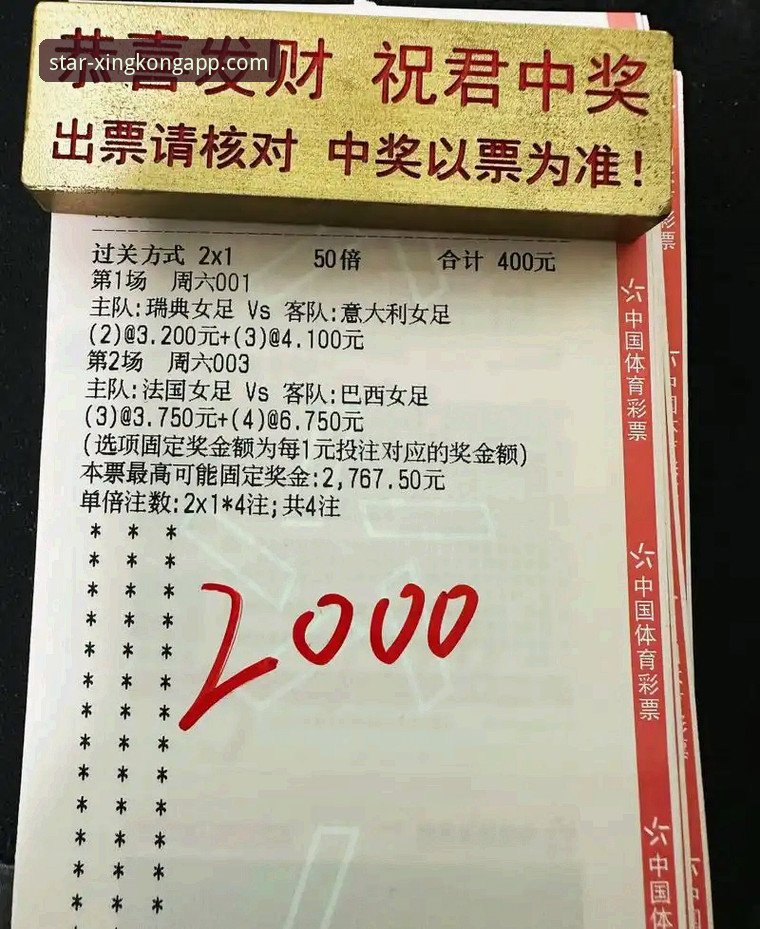 恭喜发财 祝君中奖
star-xingkongapp.com
出票请核对 中奖以票为准!
过关方式 2x1 50倍 合计 400元
第1场 周六001
主队:瑞典女足 Vs 客队:意大利女足
(2)@3.200元+(3)@4.100元
第2场 周六003
主队:法国女足 Vs 客队:巴西女足
(3)@3.750元+(4)@6.750元
(选项固定奖金额为每1元投注对应的奖金额)
本票最高可能固定奖金:2,767.50元
单倍注数:2x1*4注;共4注
* * *
* * *
* * *
* * *
* * *
* * *
* * *
* * *
* * *
* * *
* * *
* * *
* * *
2000
中国体育彩票
中国体育彩票
中国体
彩票